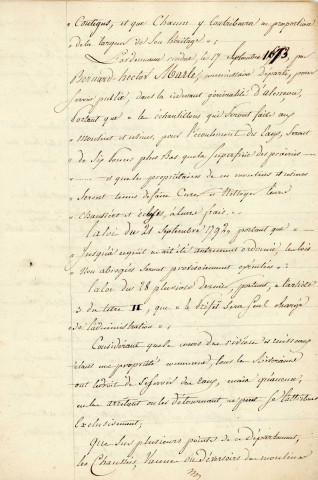 « Contigus, et que Chacun y Contribuera en proportion
« de la largeur de son héritage » ;
L'ordonnance rendue, le 17 Septembre 1673, par
Bernard-hector Marle, commissaire départi, pour
servir publié, dans la généralité d'alençon,
portant que « les échantillons qui Seront faits aux
« moulins et usines, pour l'écoulement des Eaux, Seront
« de Six pouces plus Bas que la Superficie des prairies
« et que les propriétaires de ces moulins et usines
« Seront tenus de faire Curer et Nettoyer leurs
« chaussées et à leurs frais. »
La loi du 21 Septembre 1792, portant que «
« Jusqu'à ce qu'il ait été autrement ordonné, les lois
« Non abrogées Seront provisoirement exécutées »
La loi du 28 pluviose dernier, portant, à l'article
3 du titre II, que « le préfet Sera Seul chargé
« de l'administration » ;
Considérant que le cours des rivières et ruisseaux
est une propriété commune, tous les Riverains
ont le droit de Se Servir des Eaux, mais qu'aucun,
en les arrêtant ou les détournant, ne peut Se l'attribuer
Exclusivement ;
Que Sur plusieurs points de ce département,
les Chaussées, Vannes ou déversoirs des moulins